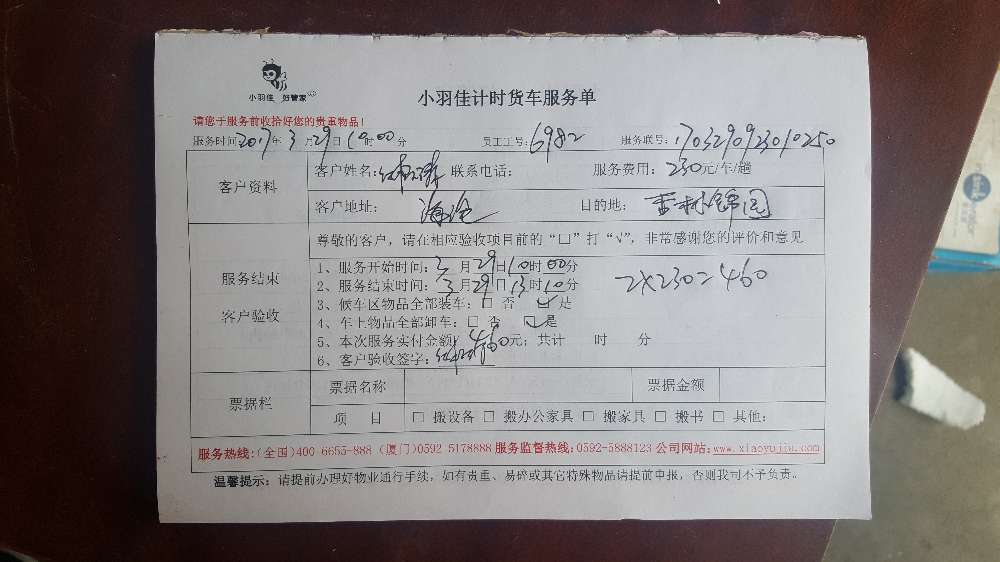 小羽佳 好管家
小羽佳计时货车服务单
请您于服务前收拾好您的贵重物品！
服务时间2017年3月29日10时00分 员工工号：6982 服务联号：1703290923010250
客户资料
客户姓名： 联系电话： 服务费用：230元/车/趟
客户地址： 海沧 目的地：
尊敬的客户，请在相应验收项目前的“□”打“√”，非常感谢您的评价和意见
服务结束
客户验收
1、服务开始时间：3月29日10时00分
2、服务结束时间：3月29日13时10分
2×230=460
3、候车区物品全部装车：□ 否 ☑是
4、车上物品全部卸车：□ 否 ☑是
5、本次服务实付金额 460元；共计 时 分
6、客户验收签字：
票据栏
票据名称 票据金额
项 目 □ 搬设备 □ 搬办公家具 □ 搬家具 □ 搬书 □ 其他：
服务热线：(全国)400-6655-888 (厦门)0592-5178888 服务监督热线：0592-5888123 公司网站：www.xiaoyujia.com
温馨提示：请提前办理好物业通行手续，如有贵重、易碎或其它特殊物品请提前申报，否则我司不予负责。